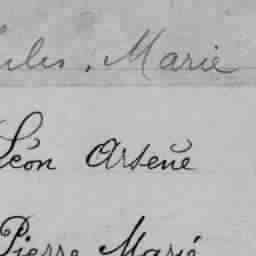 Jules, Marie
Léon Arsène
Pierre Marie